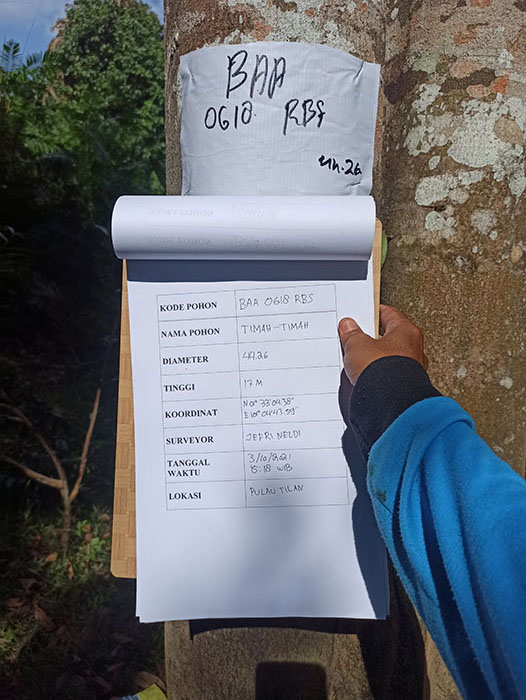 BAA
0618 RBS
44.26
KODE POHON BAA 0618 RBS
NAMA POHON TIMAH-TIMAH
DIAMETER 44.26
TINGGI 17 M
KOORDINAT N 0° 33'04.38"
SURVEYOR JEFRI NELDI
TANGGAL 3/10/2021
WAKTU 15:18 WIB
LOKASI PULAU TILAN